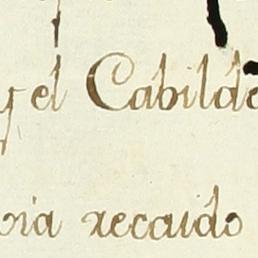 y el Cabildo
via recaido